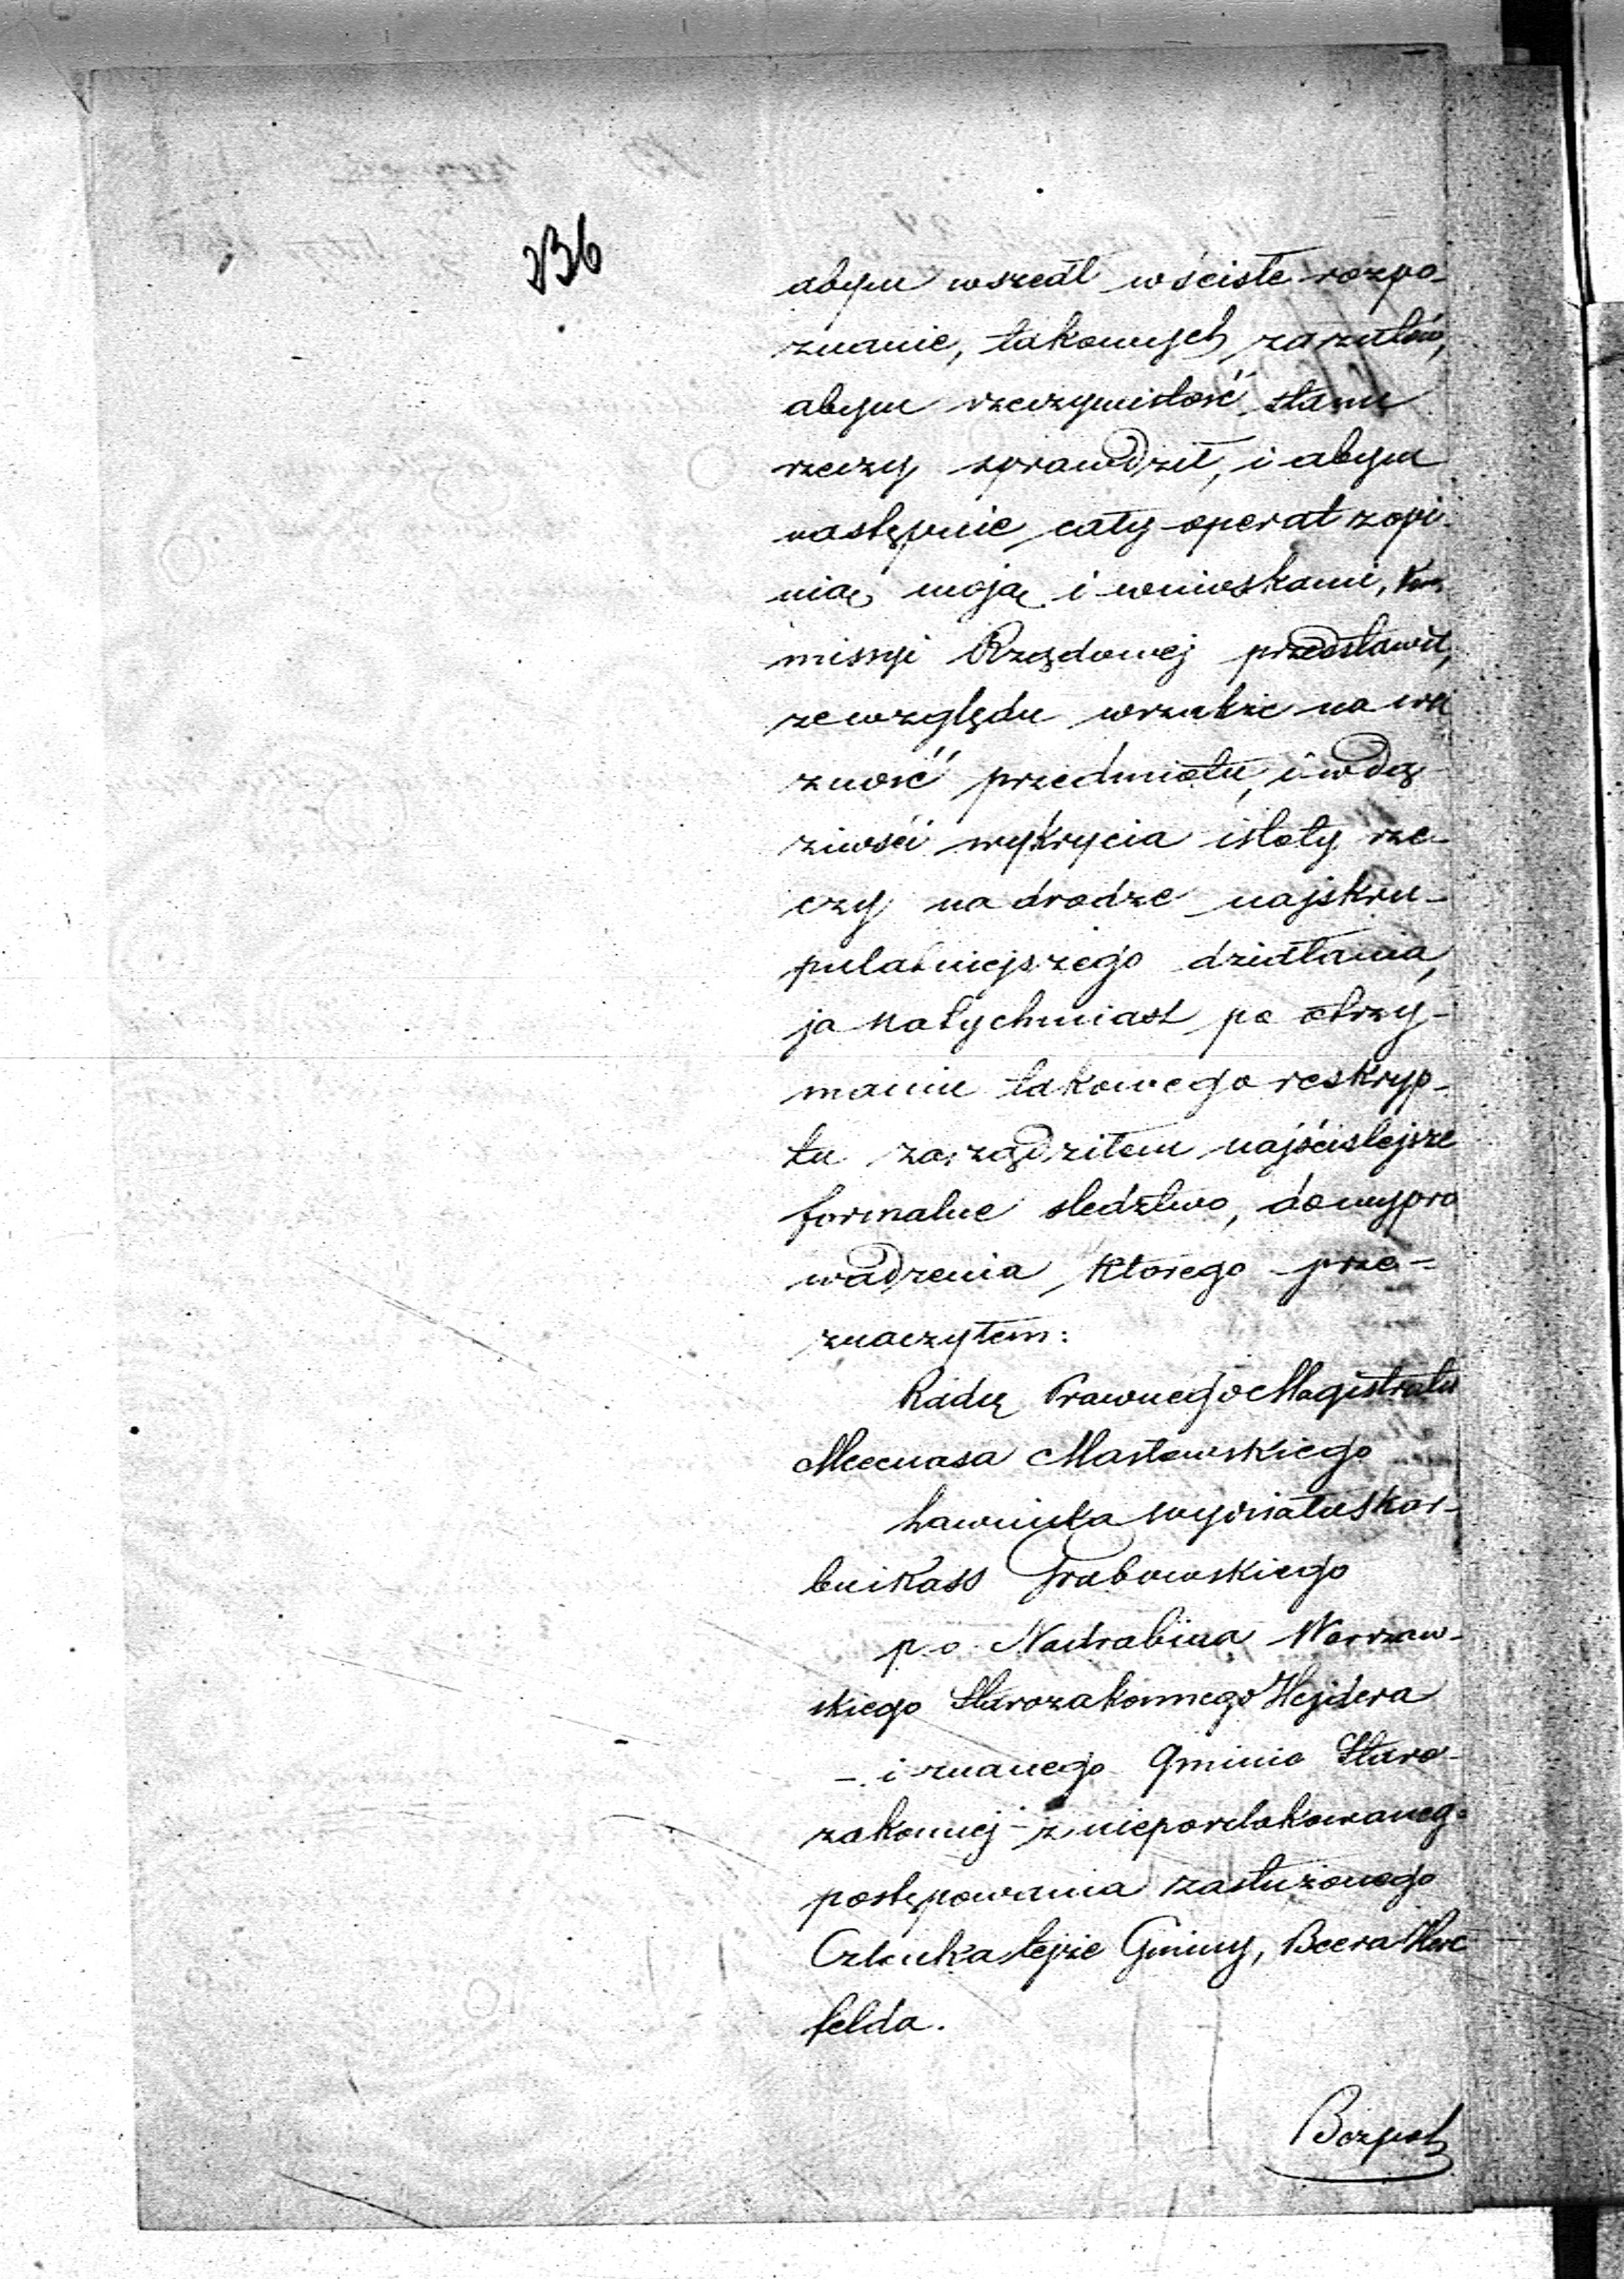 236
abym wszedł w ścisłe rozpo-
znanie, takowych zarzutów,
abym rzeczywistość stanu
rzeczy sprawdził, i abym
następnie cały operat z opi-
nią moją i wnioskami, Kom
missyi Rządowej przedstawił,
ze względu wszakże na wa
żność przedmiotu, i w dą-
żności wykrycia istoty rze-
czy na drodze najskru-
pulatniejszego działania,
ja natychmiast po otrzy-
maniu takowego reskryp-
tu zarządziłem najściślejsze
formalne śledztwo, do wypro
wadzenia którego prze-
znaczyłem:
Radcę Prawnego Magistratu
Mecenasa Masłowskiego
Ławnika Wydziału Skar-
bu i Kass Grabowskiego
p. o. Nadrabina Warszaw-
skiego Starozakonnego Hejdera
- i znanego Gminie Staro-
zakonnej - z nieposzlakowanego
postępowania zasłużonego
Członka tejże Gminy, Beera Herc
felda.